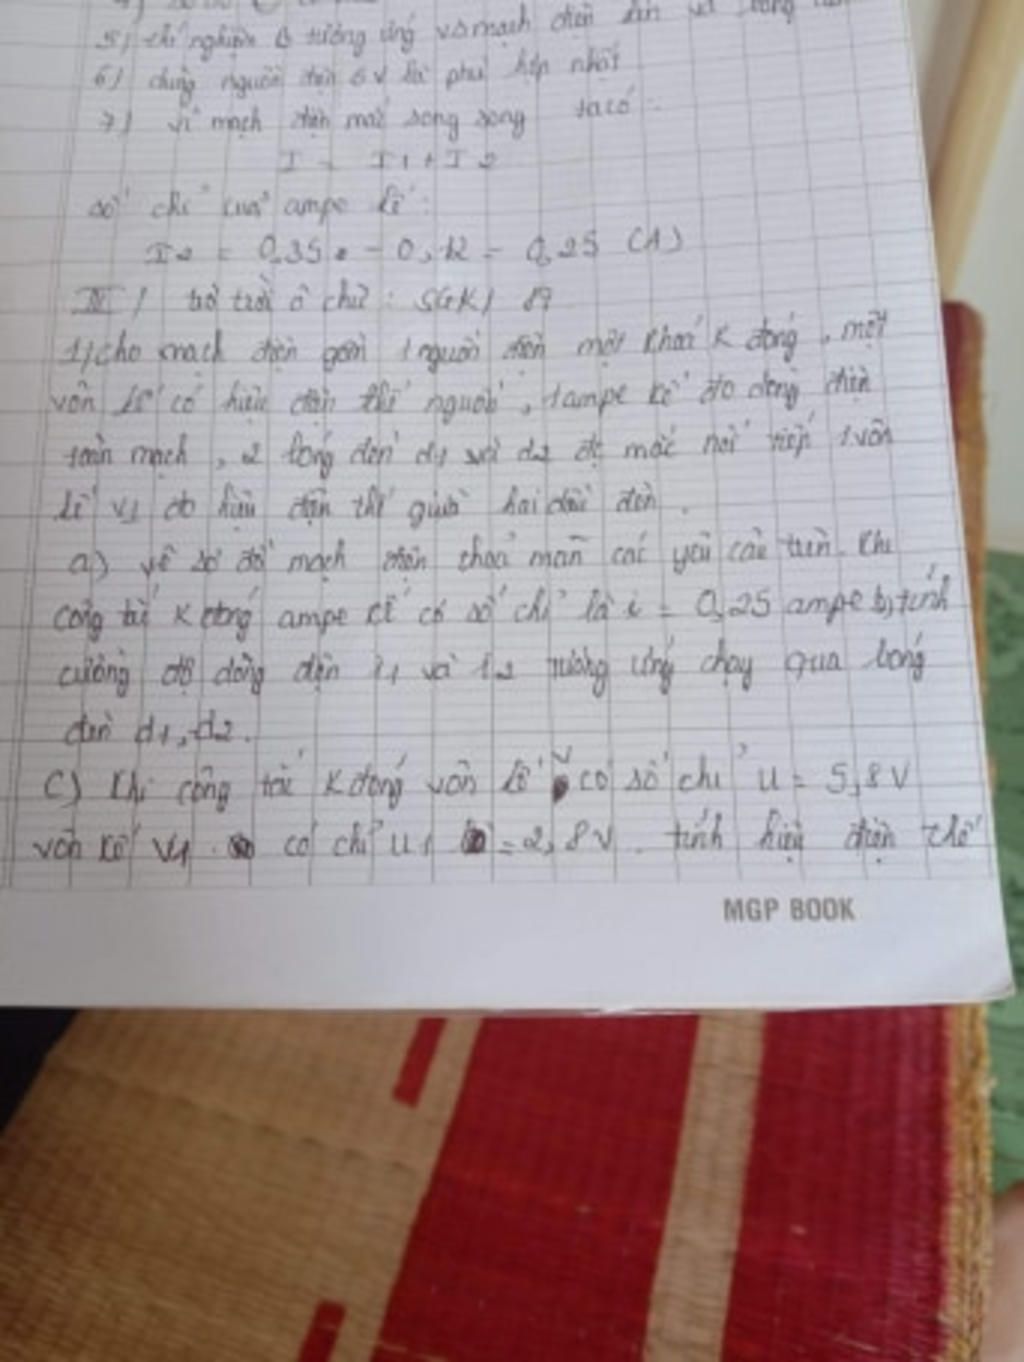 5) thí nghiệm tương ứng với mạch điện
6) dùng nguồn điện 6V là phù hợp nhất
7) vì mạch điện mắc song song ta có:
I = I1 + I2
số chỉ của ampe kế:
I2 = 0,35 - 0,12 = 0,25 (A)
IV/ trò trơi ô chữ: SGK/ 87
1) cho mạch điện gồm 1 nguồn điện một khoá K đóng, một
vôn kế có hiệu điện thế nguồn, 1 ampe kế đo dòng điện
toàn mạch, 2 bóng đèn d1 và d2 mắc nối tiếp 1 vôn
kế V1 đo hiệu điện thế giữa hai đầu đèn.
a) vẽ sơ đồ mạch điện thoả mãn các yêu cầu trên. Khi
công tắc K đóng ampe kế có số chỉ là i = 0,25 ampe b) tính
cường độ dòng điện i1 và i2 tương ứng chạy qua bóng
đèn d1, d2.
C) Khi công tắc K đóng vôn kế V có số chỉ U = 5,8V
vôn kế V1 có chỉ U1 = 2,8V. tính hiệu điện thế
MGP BOOK